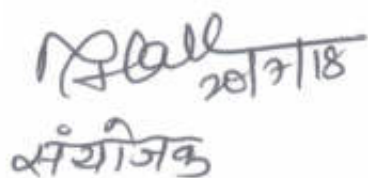 20/7/18
संयोजक